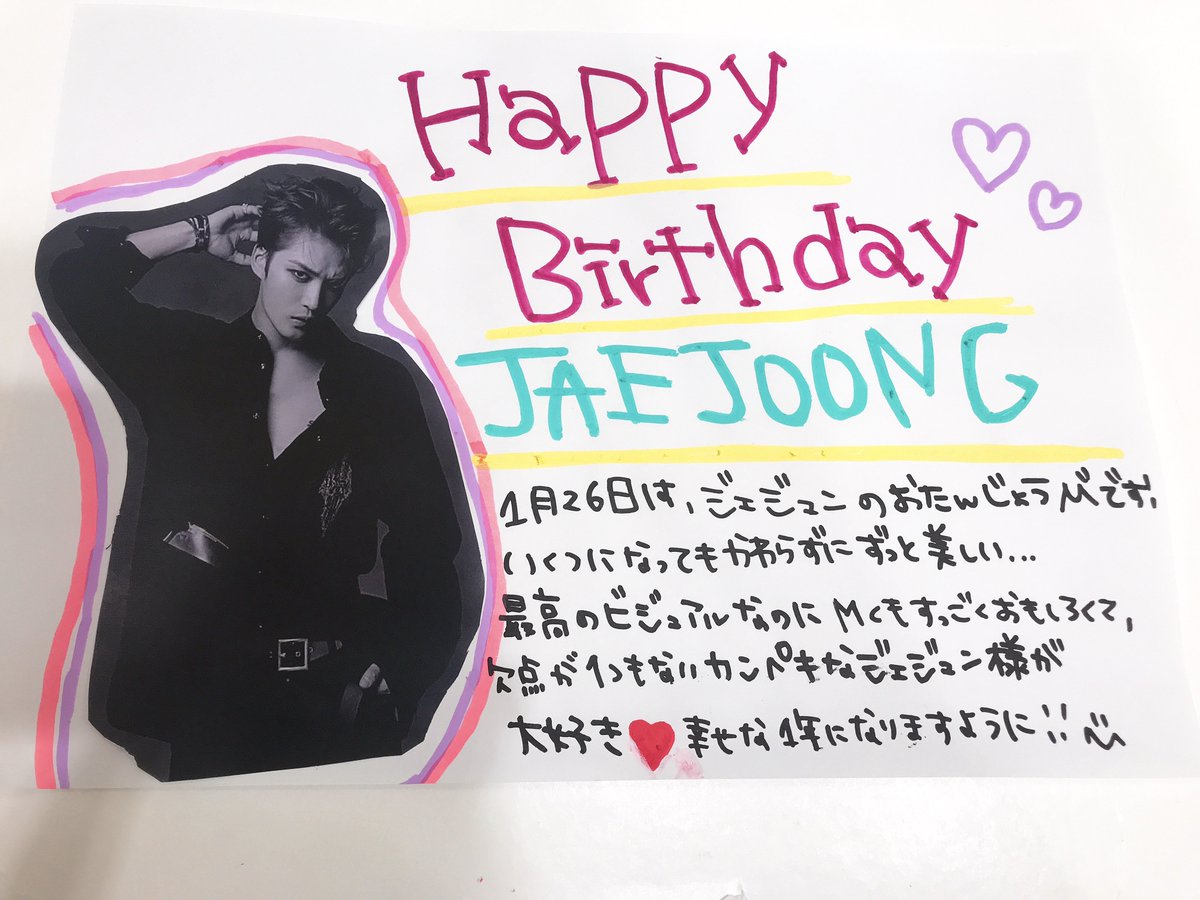 Happy
Birthday
JAEJOONG
1月26日は、ジェジュンのおたんじょうびです。
いくつになってもかわらずにずっと美しい...
最高のビジュアルなのにMCもすっごくおもしろくて、
欠点が1つもないカンペキなジェジュン様が
大好き♥幸せな1年になりますように!!